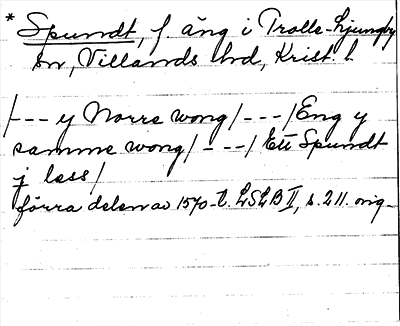 * Spundt, f. äng i Trolle-Ljungby
sn, Villands hd, Krist. l.
/--- y Norre wong/---/Eng y
samme wong/---/Ett Spundt
j less/
förra delen av 1570-t. LSLB II, s. 211. orig.